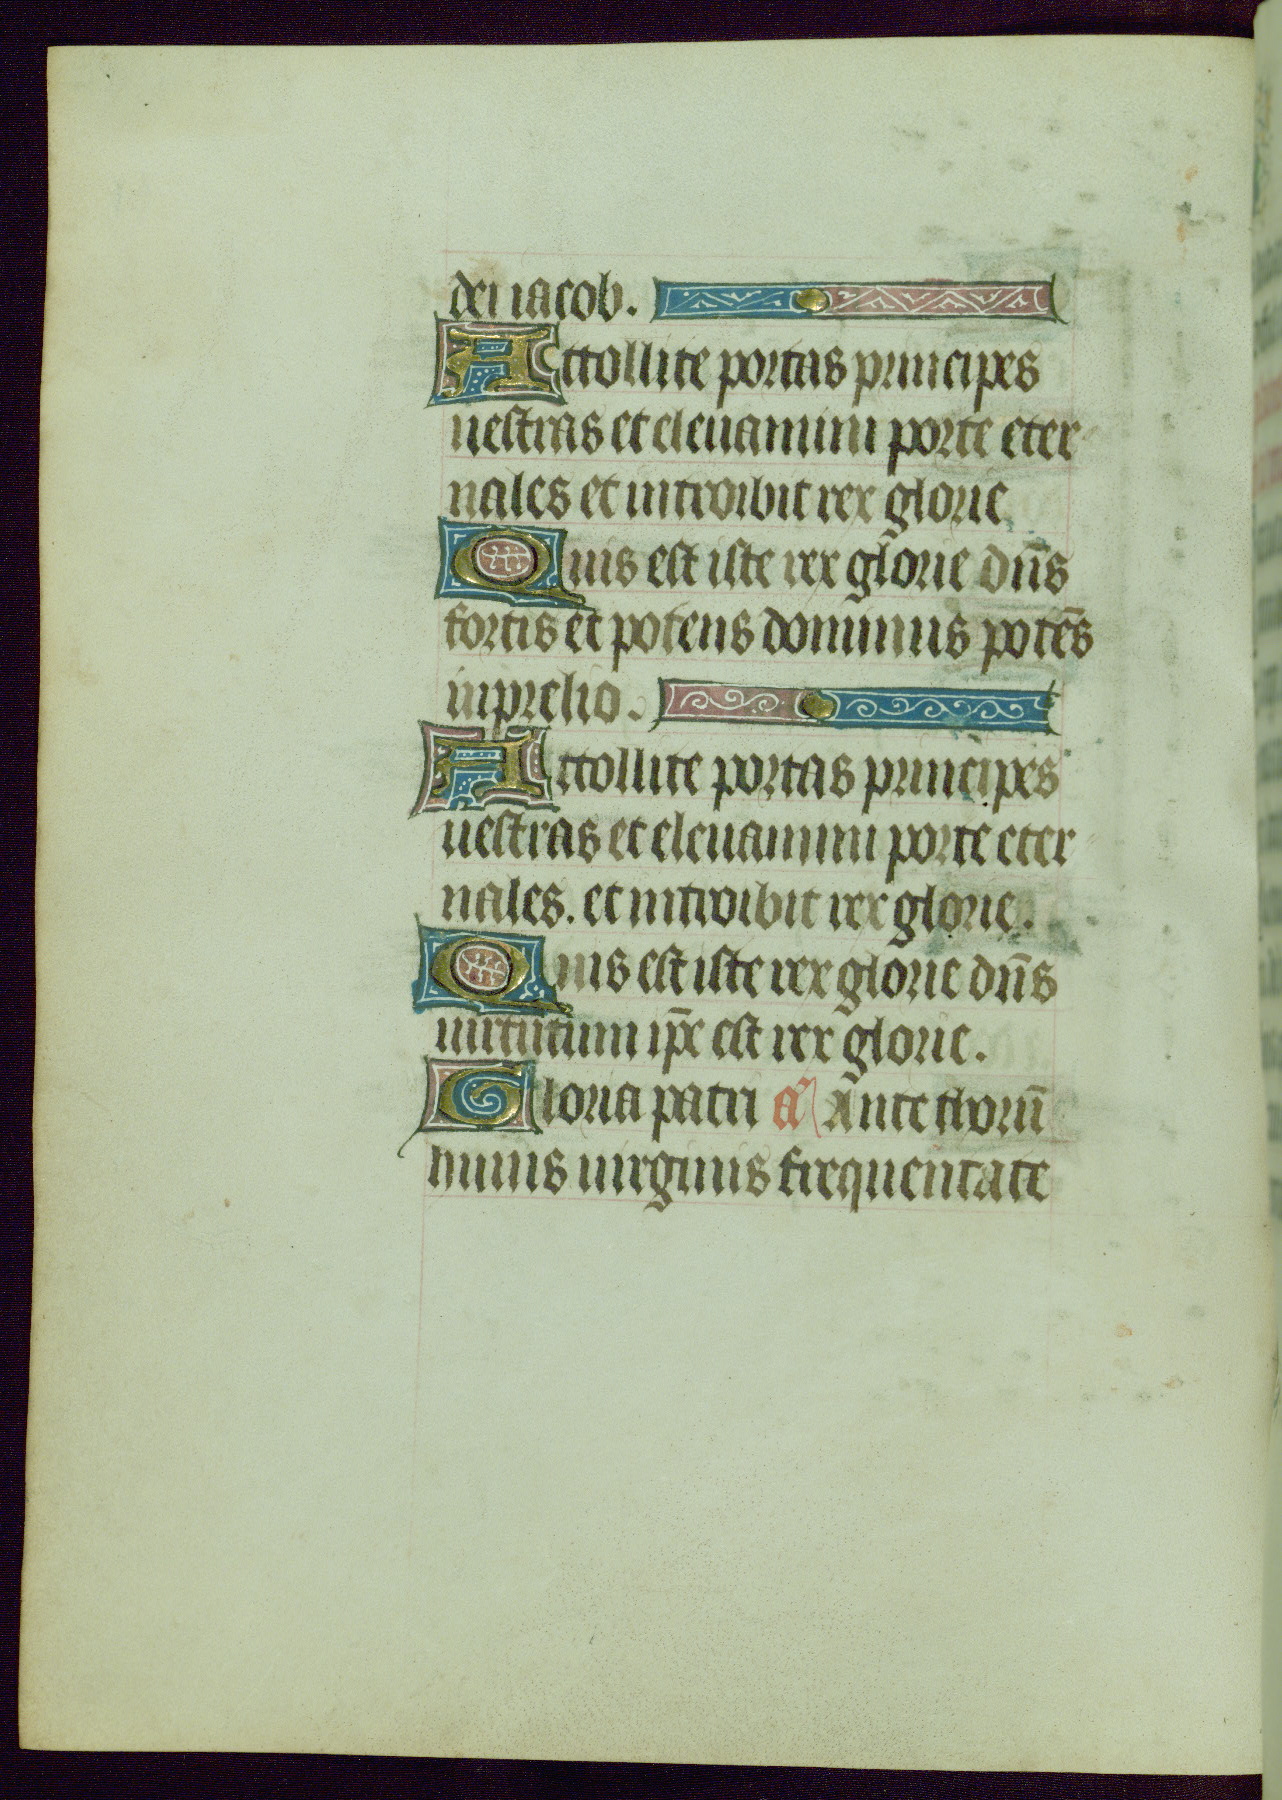 dei iacob.
Attollite portas principes
uestras et eleuamini porte eter
nales et introibit rex glorie
Quis est iste rex glorie dñs
fortis et potens dominus potẽs
in prelio.
Attollite portas principes
uestras et eleuamini porte eter
nales. et introibit rex glorie.
Quis est iste rex glorie dñs
uirtutum ip̃e est rex glorie.
Gloria patri añ Ante thorũ
huius uirginis frequentate